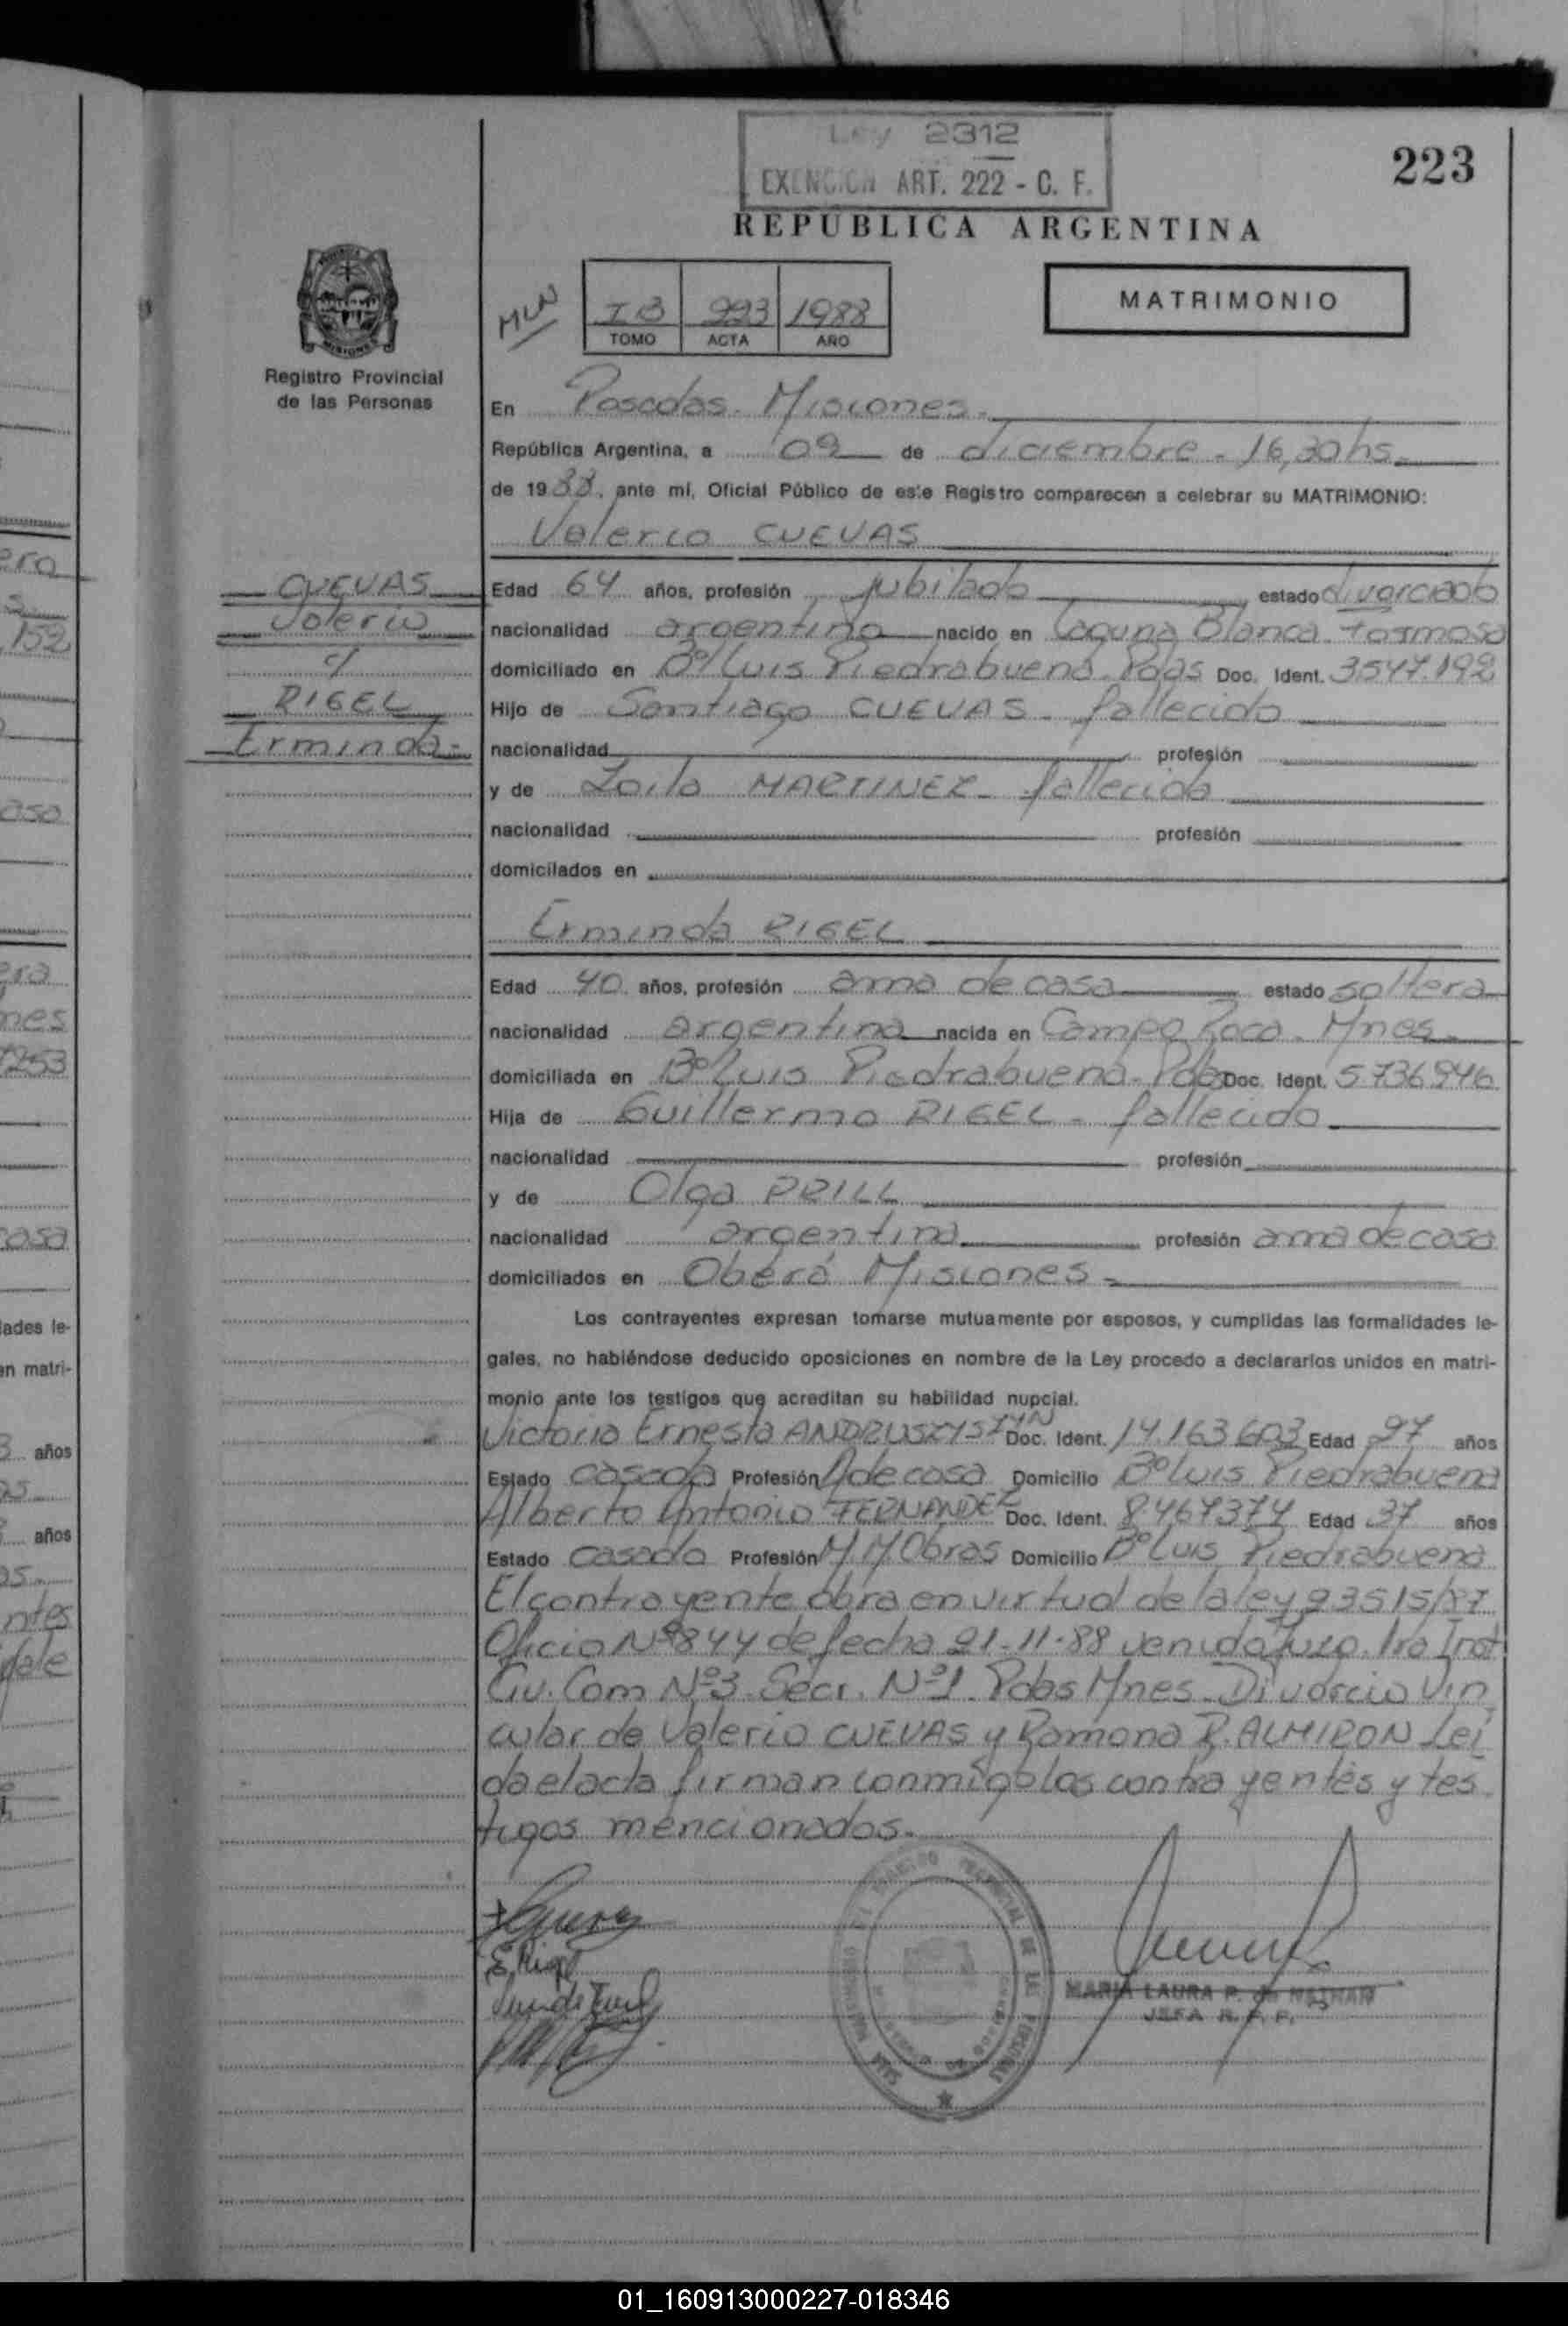 Ley 2312
EXENCION ART. 222 - C. F.
223
REPUBLICA ARGENTINA
MLN
I B 223 1988
TOMO ACTA AÑO
MATRIMONIO
MISIONES
Registro Provincial
de las Personas
En Posadas. Misiones.
República Argentina, a 02 de diciembre. 16,30hs.
de 1988. ante mí, Oficial Público de este Registro comparecen a celebrar su MATRIMONIO:
Valerio CUEVAS
CUEVAS
Valerio
c/
RIGEL
Erminda-
Edad 64 años, profesión jubilado estado divorciado
nacionalidad argentina nacido en Laguna Blanca. Formosa
domiciliado en Bº Luis Piedrabuena. Pdas Doc. Ident. 3547.192
Hijo de Santiago CUEVAS - fallecido
nacionalidad profesión
y de Zoila MARTINEZ - fallecida
nacionalidad profesión
domicilados en
Erminda RIGEL
Edad 40 años, profesión ama de casa estado soltera
nacionalidad argentina nacida en Campo Roca. Mnes.
domiciliada en Bº Luis Piedrabuena. Pdas Doc. Ident. 5736946
Hija de Guillermo RIGEL - fallecido
nacionalidad profesión
y de Olga PRILL
nacionalidad argentina profesión ama de casa
domiciliados en Oberá Misiones-
Los contrayentes expresan tomarse mutuamente por esposos, y cumplidas las formalidades le-
gales, no habiéndose deducido oposiciones en nombre de la Ley procedo a declararlos unidos en matri-
monio ante los testigos que acreditan su habilidad nupcial.
Victoria Ernesta ANDRUSZYSZYN Doc. Ident. 14.163.603 Edad 27 años
Estado casada Profesión A de casa Domicilio Bº Luis Piedrabuena
Alberto Antonio FERNANDEZ Doc. Ident. 8467374 Edad 37 años
Estado casado Profesión M M Obras Domicilio Bº Luis Piedrabuena
El contrayente obra en virtud de la ley 23515/87
Oficio Nº 844 de fecha 21-11-88 venida Juzg. 1ra Inst
Civ. Com Nº3. Secr. Nº1. Pdas Mnes. Divorcio Vin
cular de Valerio CUEVAS y Ramona R. ALMIRON Leí
da el acta firman conmigo los contrayentes y tes
tigos mencionados.
E. Rigel
MARIA LAURA P. de NATHAN
JEFA R. P. P.
01_160913000227-018346